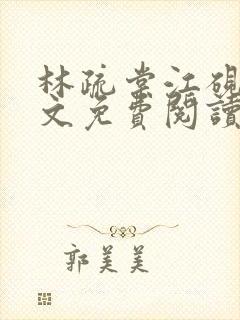 林疏棠江硯
文免費閱讀
郭美美